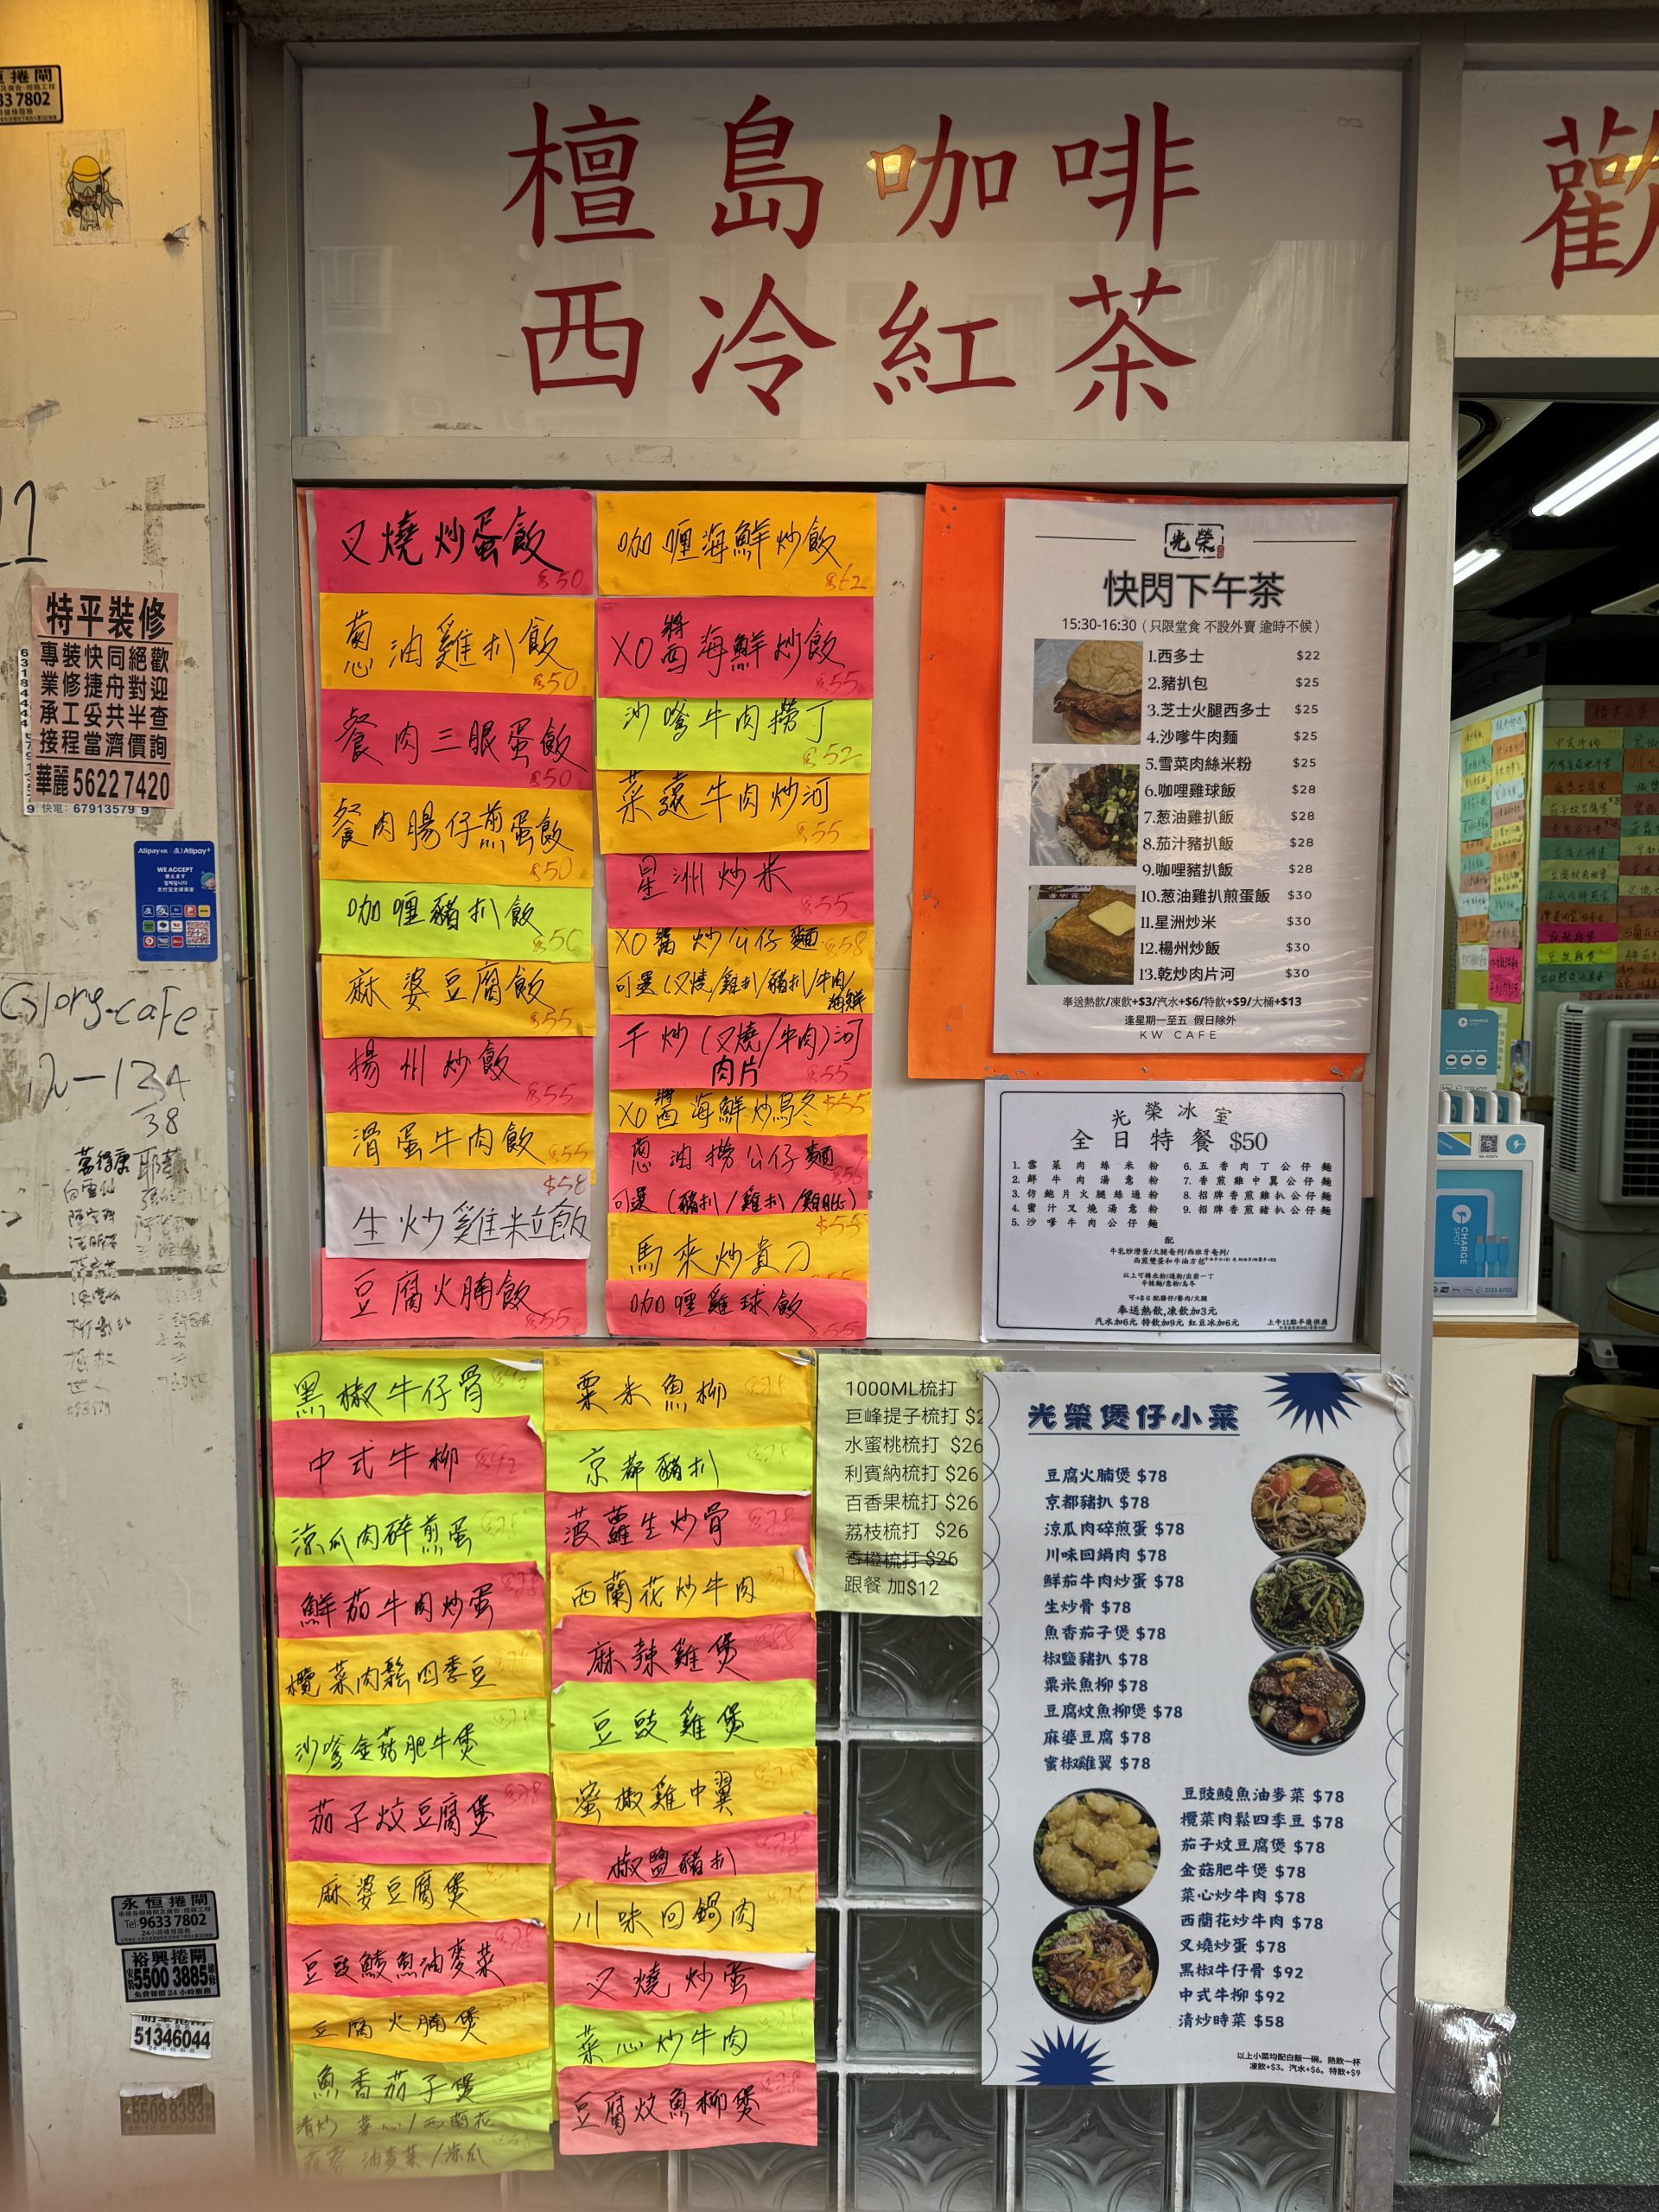 檀島咖啡
西冷紅茶
歡
捲閘
33 7802
特平裝修
專裝快同絕歡
業修捷舟對迎
承工妥共半查
接程當濟價詢
華麗 5622 7420
快電: 67913579
63184444
AlipayHK Alipay+
WE ACCEPT
Glory-cafe
永恒捲閘
Tel: 9633 7802
24小時服務
裕興捲閘
5500 3885
免費報價 24小時服務
51346044
55088393
叉燒炒蛋飯 $50
葱油雞扒飯 $50
餐肉三眼蛋飯 $50
餐肉腸仔煎蛋飯 $50
咖喱豬扒飯 $50
麻婆豆腐飯 $55
揚州炒飯 $55
滑蛋牛肉飯 $55
生炒雞粒飯 $58
豆腐火腩飯 $55
咖喱海鮮炒飯 $62
XO醬海鮮炒飯 $55
沙嗲牛肉撈丁 $52
菜遠牛肉炒河 $55
星洲炒米 $55
XO醬炒公仔麵 $58
可選(叉燒/雞扒/豬扒/牛肉/海鮮
干炒(叉燒/牛肉)河 $55
肉片
XO醬海鮮炒烏冬 $55
葱油撈公仔麵 $56
可選(豬扒/雞扒/雞肶)
馬來炒貴刁 $55
咖喱雞球飯 $55
光榮
快閃下午茶
15:30-16:30(只限堂食 不設外賣 逾時不候)
1.西多士 $22
2.豬扒包 $25
3.芝士火腿西多士 $25
4.沙嗲牛肉麵 $25
5.雪菜肉絲米粉 $25
6.咖哩雞球飯 $28
7.葱油雞扒飯 $28
8.茄汁豬扒飯 $28
9.咖哩豬扒飯 $28
10.葱油雞扒煎蛋飯 $30
11.星洲炒米 $30
12.楊州炒飯 $30
13.乾炒肉片河 $30
奉送熱飲/凍飲+$3/汽水+$6/特飲+$9/大桶+$13
逢星期一至五 假日除外
KW CAFE
光榮冰室
全日特餐 $50
1. 雪菜肉絲米粉
2. 鮮牛肉湯意粉
3. 仿鮑片火腿絲通粉
4. 蜜汁叉燒湯意粉
5. 沙嗲牛肉公仔麵
6. 五香肉丁公仔麵
7. 香煎雞中翼公仔麵
8. 招牌香煎雞扒公仔麵
9. 招牌香煎豬扒公仔麵
配
牛乳炒滑蛋/火腿奄列/西班牙奄列/
西煎雙蛋和牛油方包
以上可轉米粉/通粉/出前一丁
辛辣麵/意粉/烏冬
可+$6 配腸仔/餐肉/火腿
奉送熱飲,凍飲加3元
汽水加6元 特飲加9元 紅豆冰加6元
上午11點半後供應
黑椒牛仔骨
中式牛柳 $92
涼瓜肉碎煎蛋
鮮茄牛肉炒蛋
欖菜肉鬆四季豆
沙嗲金菇肥牛煲
茄子炆豆腐煲
麻婆豆腐煲
豆豉鯪魚油麥菜
豆腐火腩煲
魚香茄子煲
清炒 菜心/西蘭花
油麥菜/涼瓜
粟米魚柳
京都豬扒
菠蘿生炒骨
西蘭花炒牛肉
麻辣雞煲
豆豉雞煲
蜜椒雞中翼
椒鹽豬扒
川味回鍋肉
叉燒炒蛋
菜心炒牛肉
豆腐炆魚柳煲
1000ML梳打
巨峰提子梳打 $2
水蜜桃梳打 $26
利賓納梳打 $26
百香果梳打 $26
荔枝梳打 $26
香橙梳打 $26
跟餐 加$12
光榮煲仔小菜
豆腐火腩煲 $78
京都豬扒 $78
涼瓜肉碎煎蛋 $78
川味回鍋肉 $78
鮮茄牛肉炒蛋 $78
生炒骨 $78
魚香茄子煲 $78
椒鹽豬扒 $78
粟米魚柳 $78
豆腐炆魚柳煲 $78
麻婆豆腐 $78
蜜椒雞翼 $78
豆豉鯪魚油麥菜 $78
欖菜肉鬆四季豆 $78
茄子炆豆腐煲 $78
金菇肥牛煲 $78
菜心炒牛肉 $78
西蘭花炒牛肉 $78
叉燒炒蛋 $78
黑椒牛仔骨 $92
中式牛柳 $92
清炒時菜 $58
以上小菜均配白飯一碗。熱飲一杯
凍飲+$3。汽水+$6。特飲+$9
CHARGE SPOT